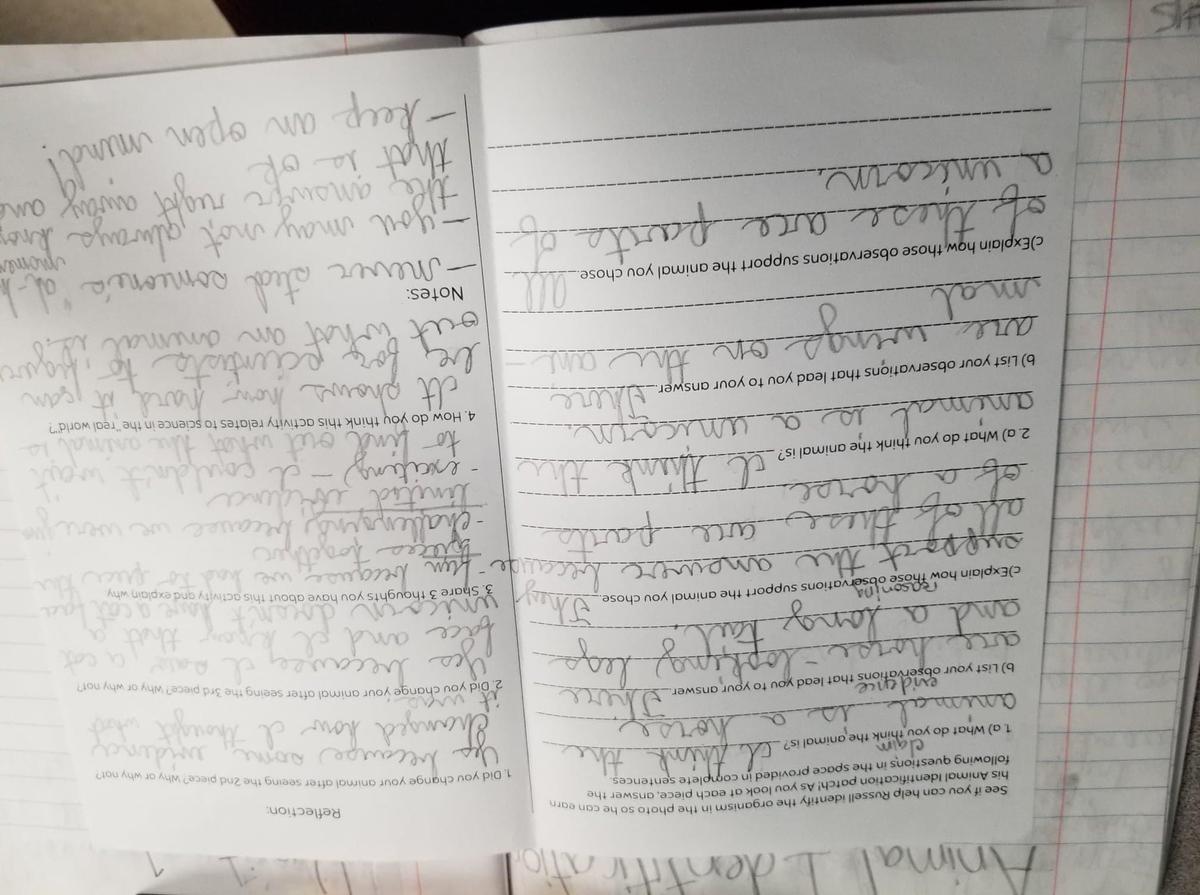 Animal Identification
See if you can help Russell identify the organism in the photo so he can earn
his Animal Identification patch! As you look at each piece, answer the
following questions in the space provided in complete sentences.
claim
1. a) What do you think the animal is? I think the
animal is a horse
evidence
b) List your observations that lead you to your answer. There
are horse-looking legs
and a long tail.
reasoning
c) Explain how those observations support the animal you chose. They
support the answere because
all of these are parts
of a horse
2. a) What do you think the animal is? I think the
animal is a unicorn.
b) List your observations that lead you to your answer. There
are wings on the ani-
mal
c) Explain how those observations support the animal you chose. All
of these are parts of
a unicorn.
Reflection:
1. Did you change your animal after seeing the 2nd piece? Why or why not?
Yes because some evidence
changed how I thought what
it was
2. Did you change your animal after seeing the 3rd piece? Why or why not?
Yes because I saw a cat
face and I know that a
unicorn doesn't have a cat face
3. Share 3 thoughts you have about this activity and explain why
-fun because we had to piece the
pieces together
-challenging because we were
limited evidence
-exciting - I couldn't wait
to find out what the animal is
4. How do you think this activity relates to science in the "real world"?
It shows how hard it can
be for scientists to figure
out what an animal is!
Notes:
-never steal someone's "ah-h
moment
-you may not always know
the answer right away and
that is ok
-keep an open mind!